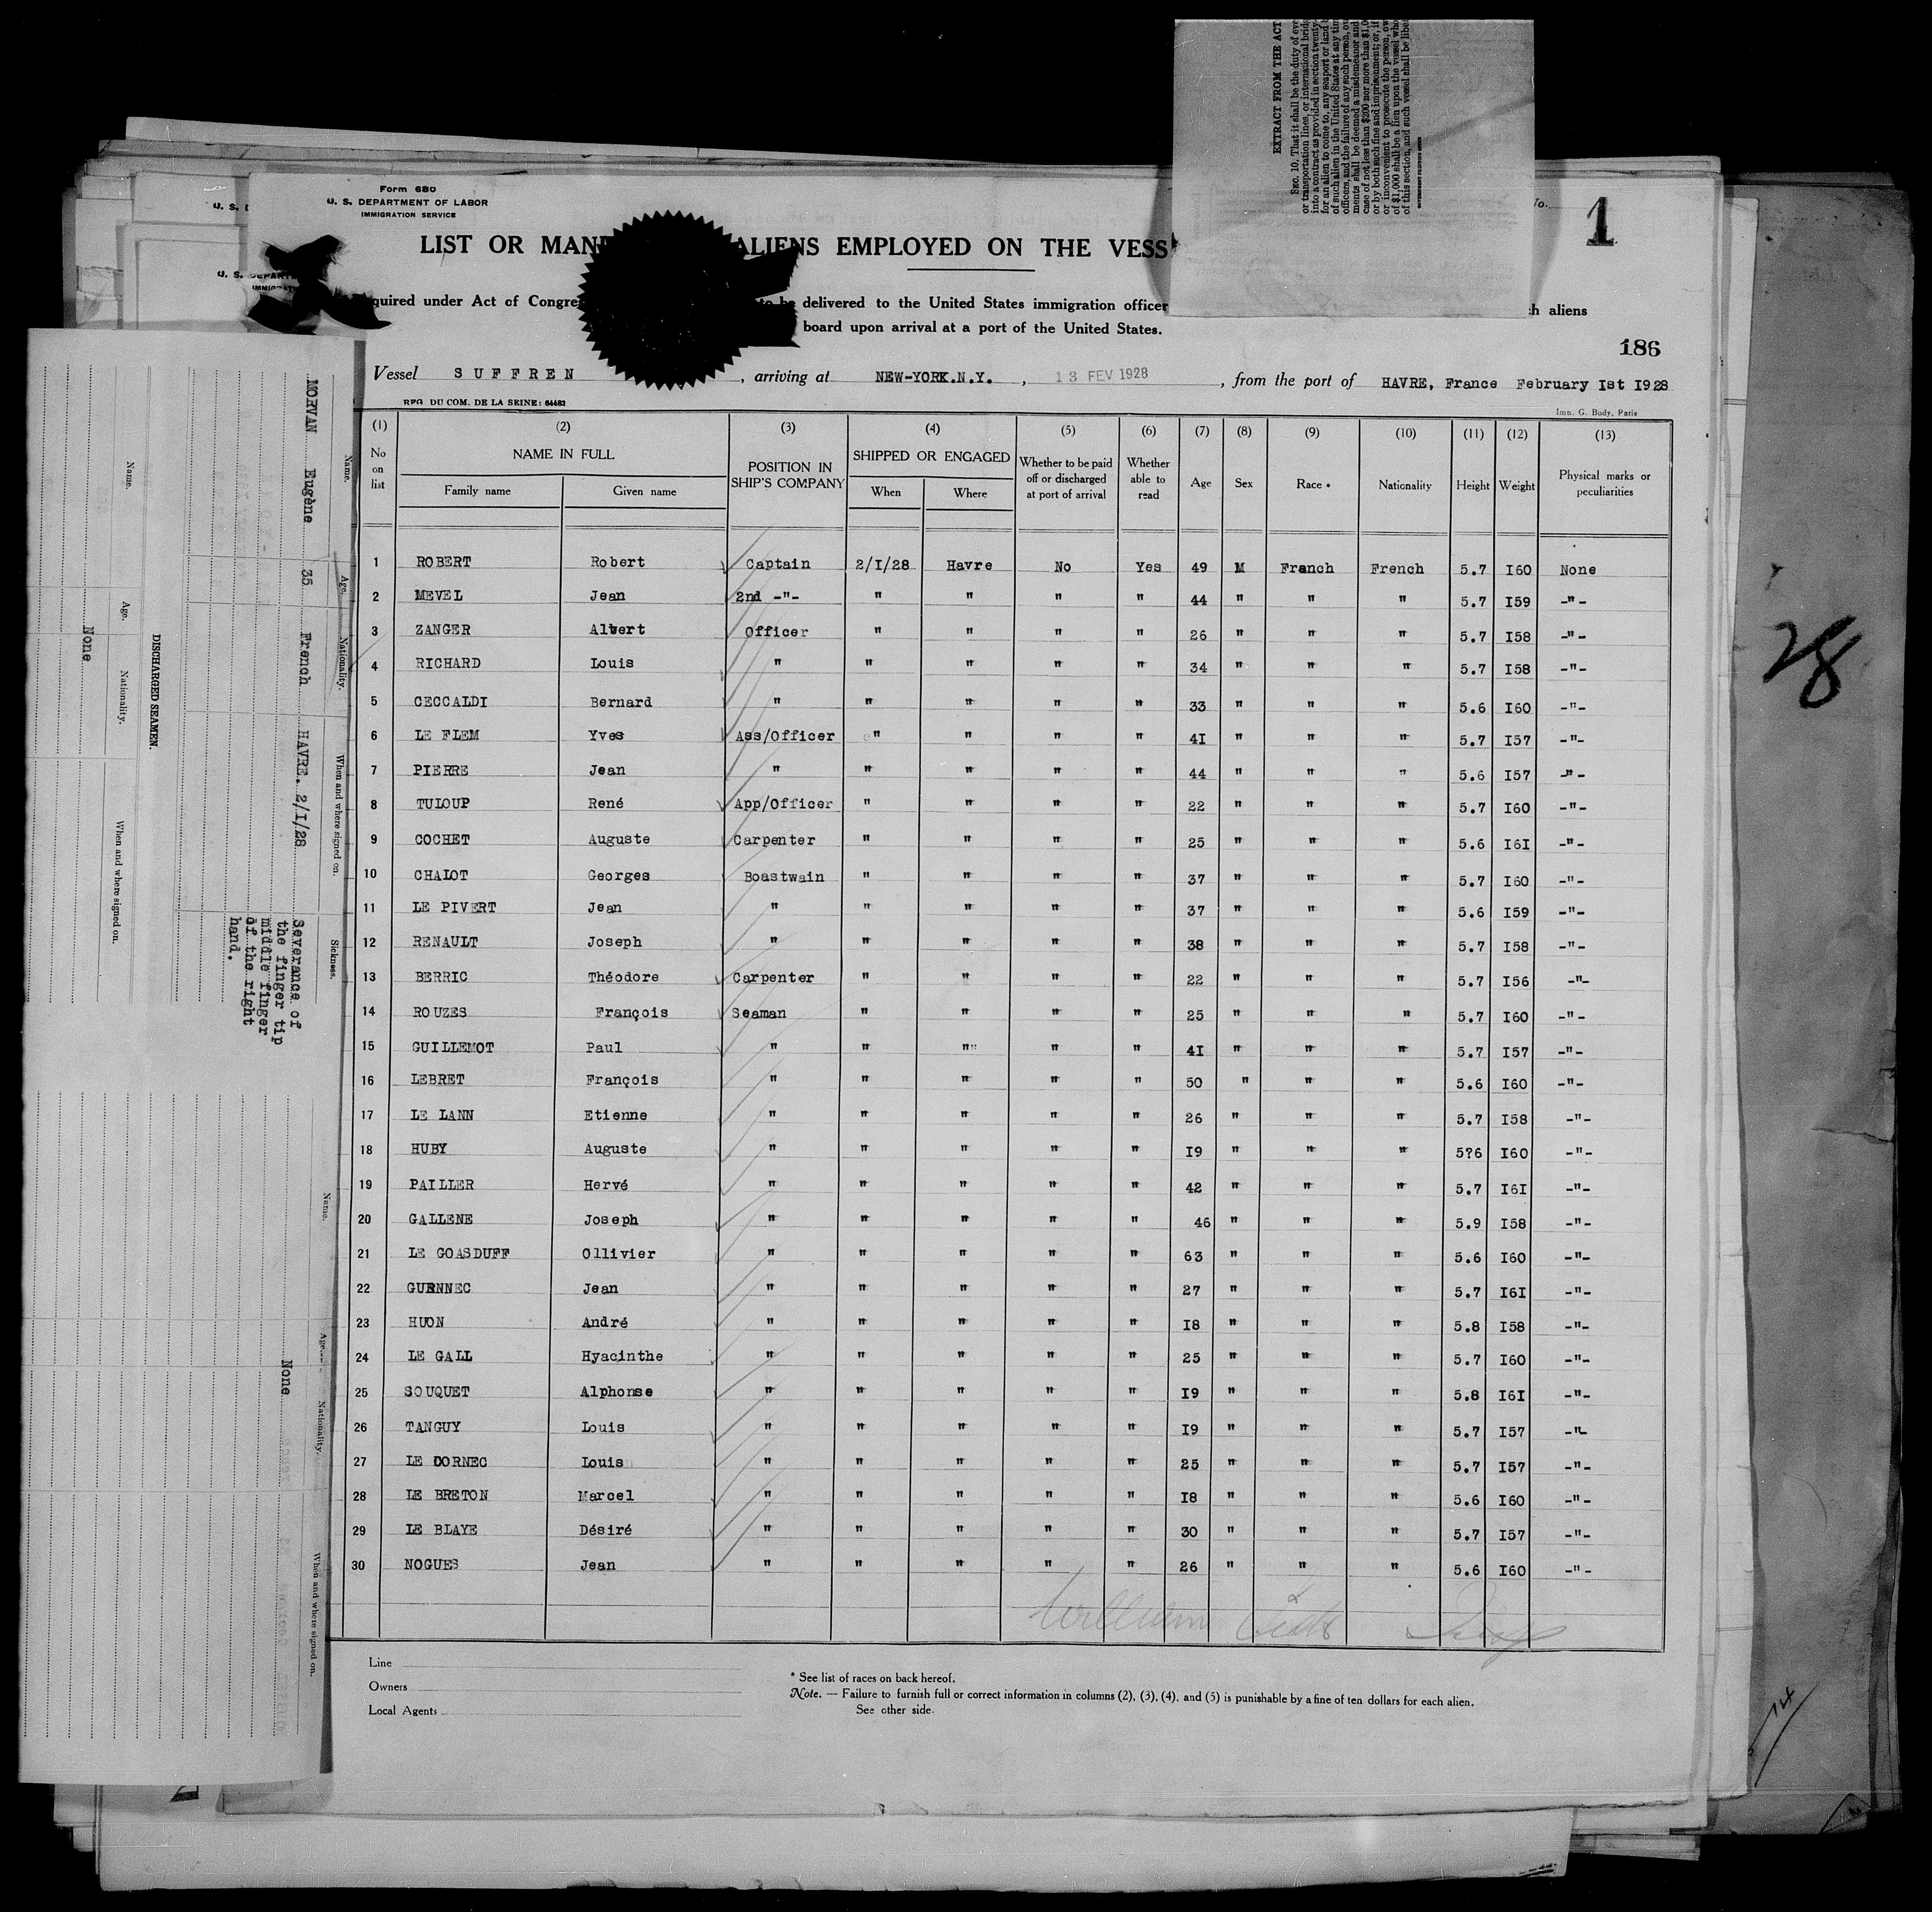 EXTRACT FROM THE ACT
SEC. 10. That it shall be the duty of
or transportation lines, or international
into a contract as provided in section twenty
for an alien to come to, any seaport or land
of such alien in the United States at any
officers, and the failure of any such person,
ments shall be deemed a misdemeanor and
case of not less than $200 nor more than
or by both such fine and imprisonment; or, if
or inconvenient to prosecute the person,
of $1,000 shall be a lien upon the vessel
of this section, and such vessel shall be
1
Form 680
U. S. DEPARTMENT OF LABOR
IMMIGRATION SERVICE
LIST OR MAN ALIENS EMPLOYED ON THE VESS
quired under Act of Congre to be delivered to the United States immigration officer ch aliens
board upon arrival at a port of the United States.
186
Vessel SUFFREN , arriving at NEW-YORK.N.Y. , 13 FEV 1928 , from the port of HAVRE, France February Ist I928
REG DU COM. DE LA SEINE: 64483
Imp. G. Budy, Paris
(1) (2) (3) (4) (5) (6) (7) (8) (9) (10) (11) (12) (13)
No on list NAME IN FULL POSITION IN SHIP'S COMPANY SHIPPED OR ENGAGED Whether to be paid off or discharged at port of arrival Whether able to read Age Sex Race * Nationality Height Weight Physical marks or peculiarities
Family name Given name When Where
1 ROBERT Robert Captain 2/I/28 Havre No Yes 49 M Franch French 5.7 I60 None
2 MEVEL Jean 2nd -"- " " " " 44 " " " 5.7 I59 -"-
3 ZANGER Albert Officer " " " " 26 " " " 5.7 I58 -"-
4 RICHARD Louis " " " " " 34 " " " 5.7 I58 -"-
5 CECCALDI Bernard " " " " " 33 " " " 5.6 I60 -"-
6 LE FLEM Yves Ass/Officer " " " " 4I " " " 5.7 I57 -"-
7 PIERRE Jean " " " " " 44 " " " 5.6 I57 -"-
8 TULOUP René App/Officer " " " " 22 " " " 5.7 I60 -"-
9 COCHET Auguste Carpenter " " " " 25 " " " 5.6 I6I -"-
10 CHALOT Georges Boastwain " " " " 37 " " " 5.7 I60 -"-
11 LE PIVERT Jean " " " " " 37 " " " 5.6 I59 -"-
12 RENAULT Joseph " " " " " 38 " " " 5.7 I58 -"-
13 BERRIC Théodore Carpenter " " " " 22 " " " 5.7 I56 -"-
14 ROUZES François Seaman " " " " 25 " " " 5.7 I60 -"-
15 GUILLEMOT Paul " " "" " " 4I " " " 5.7 I57 -"-
16 LEBRET François " " " " " 50 " " " 5.6 I60 -"-
17 LE LANN Etienne " " " " " 26 " " " 5.7 I58 -"-
18 HUBY Auguste " " " " " I9 " " " 5?6 I60 -"-
19 PAILLER Hervé " " " " " 42 " " " 5.7 I6I -"-
20 GALLENE Joseph " " " " " 46 " " " 5.9 I58 -"-
21 LE GOASDUFF Ollivier " " " " " 63 " " " 5.6 I60 -"-
22 GUENNEC Jean " " " " " 27 " " " 5.7 I6I -"-
23 HUON André " " " " " I8 " " " 5.8 I58 -"-
24 LE GALL Hyacinthe " " " " " 25 " " " 5.7 I60 -"-
25 SOUQUET Alphonse " " " " " I9 " " " 5.8 I6I -"-
26 TANGUY Louis " " " " " I9 " " " 5.7 I57 -"-
27 LE CORNEC Louis " " " " " 25 " " " 5.7 I57 -"-
28 LE BRETON Marcel " " " " " I8 " " " 5.6 I60 -"-
29 LE BLAYE Désiré " " " " " 30 " " " 5.7 I57 -"-
30 NOGUES Jean " " " " " 26 " " " 5.6 I60 -"-
Line
Owners
Local Agents
* See list of races on back hereof.
Note. — Failure to furnish full or correct information in columns (2), (3), (4), and (5) is punishable by a fine of ten dollars for each alien.
See other side.
28
Name. Age. Nationality. When and where signed on. Sickness.
MORVAN Eugène 35 French HAVRE. 2/I/28
Severance of
the finger tip
middle finger
of the right
hand.
DISCHARGED SEAMEN.
Name. Age. Nationality. When and where signed on.
None
Name. Age. Nationality. When and where signed on.
None